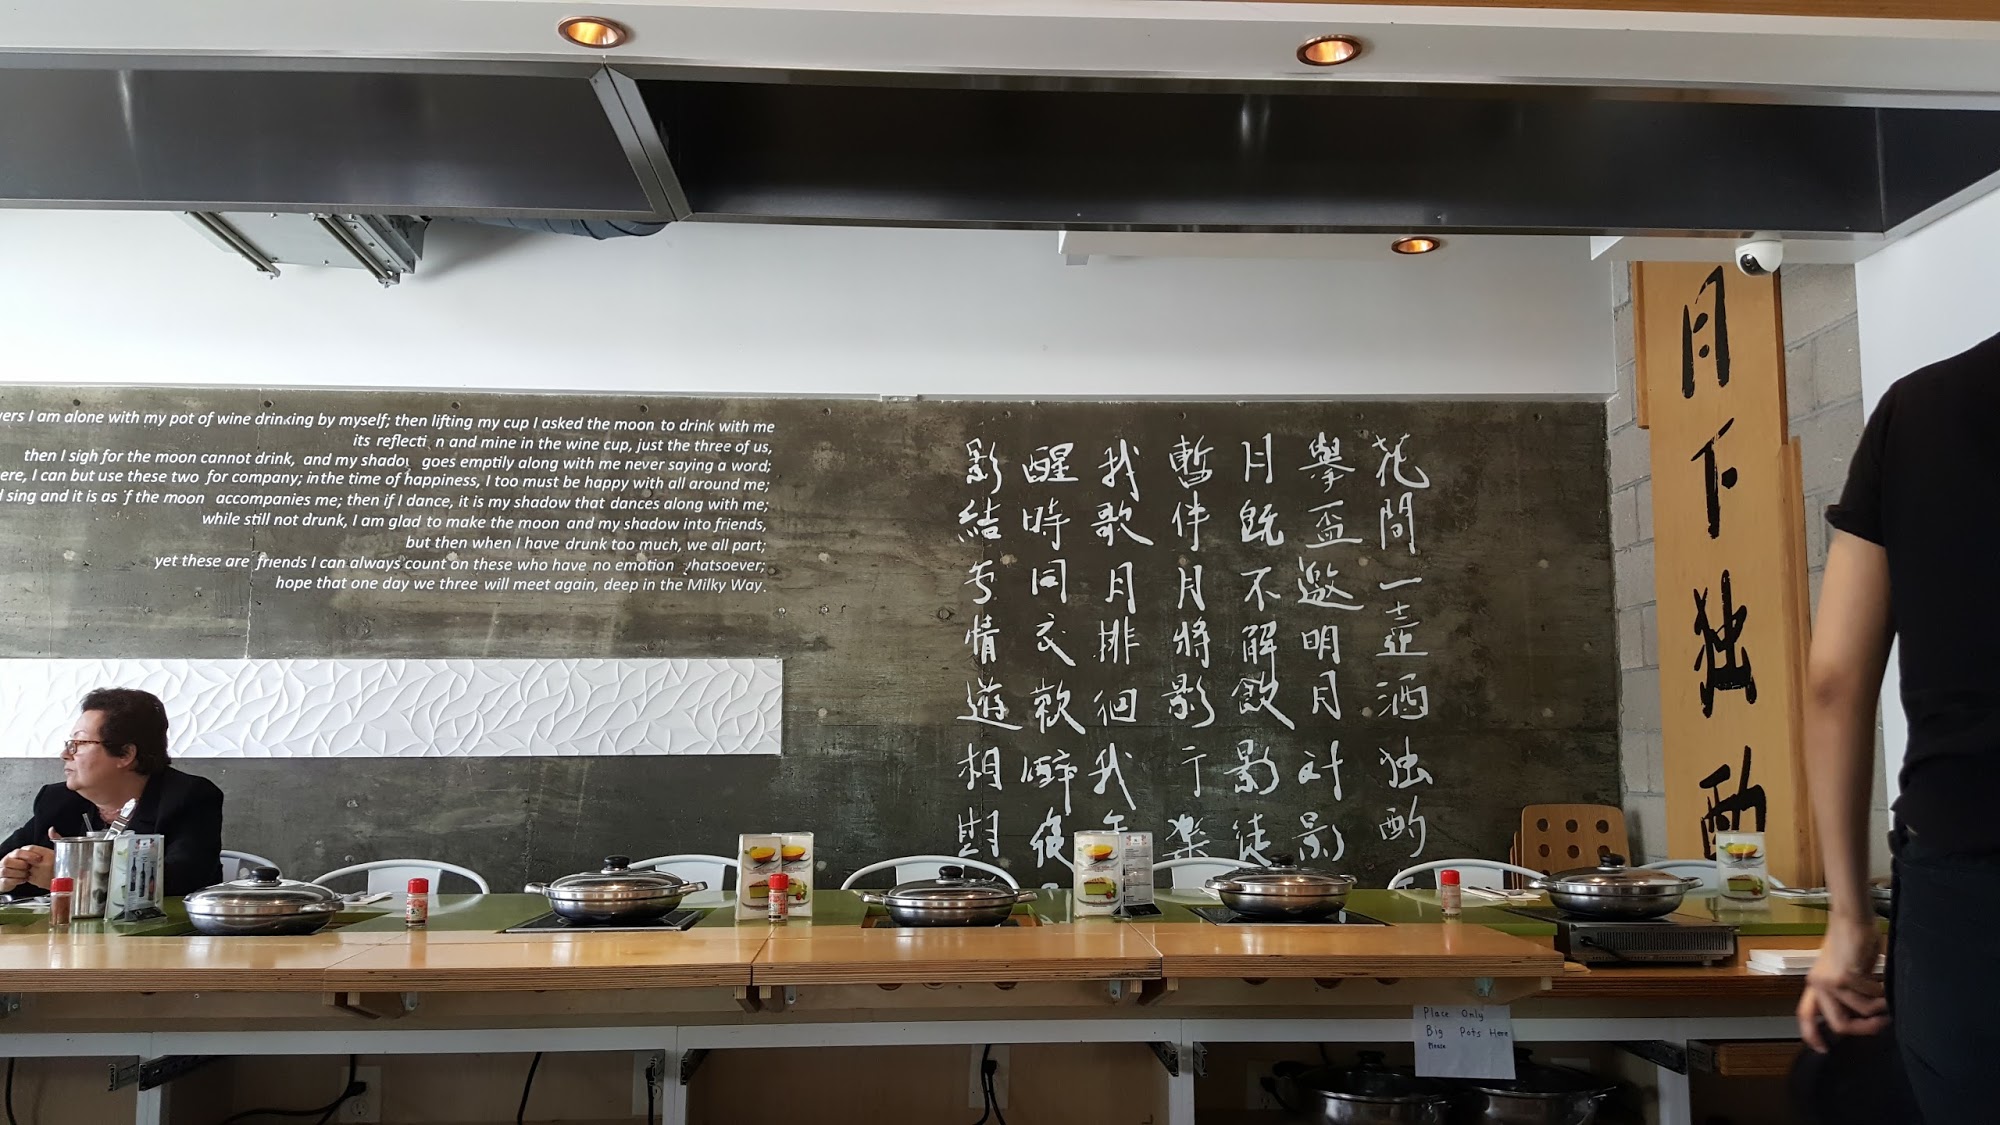 I am alone with my pot of wine drinking by myself; then lifting my cup I asked the moon to drink with me
its reflecti n and mine in the wine cup, just the three of us,
then I sigh for the moon cannot drink, and my shado goes emptily along with me never saying a word;
ere, I can but use these two for company; in the time of happiness, I too must be happy with all around me;
sing and it is as f the moon accompanies me; then if I dance, it is my shadow that dances along with me;
while still not drunk, I am glad to make the moon and my shadow into friends,
but then when I have drunk too much, we all part;
yet these are friends I can always count on these who have no emotion hatsoever;
hope that one day we three will meet again, deep in the Milky Way.
花間一壺酒独酌
舉盃邀明月对影
月既不解飲影徒
暫伴月將影行樂
我歌月排徊我
醒時同交歡醉後
影結无情遊相期
月下独酌
Place Only
Big Pots Here
Please